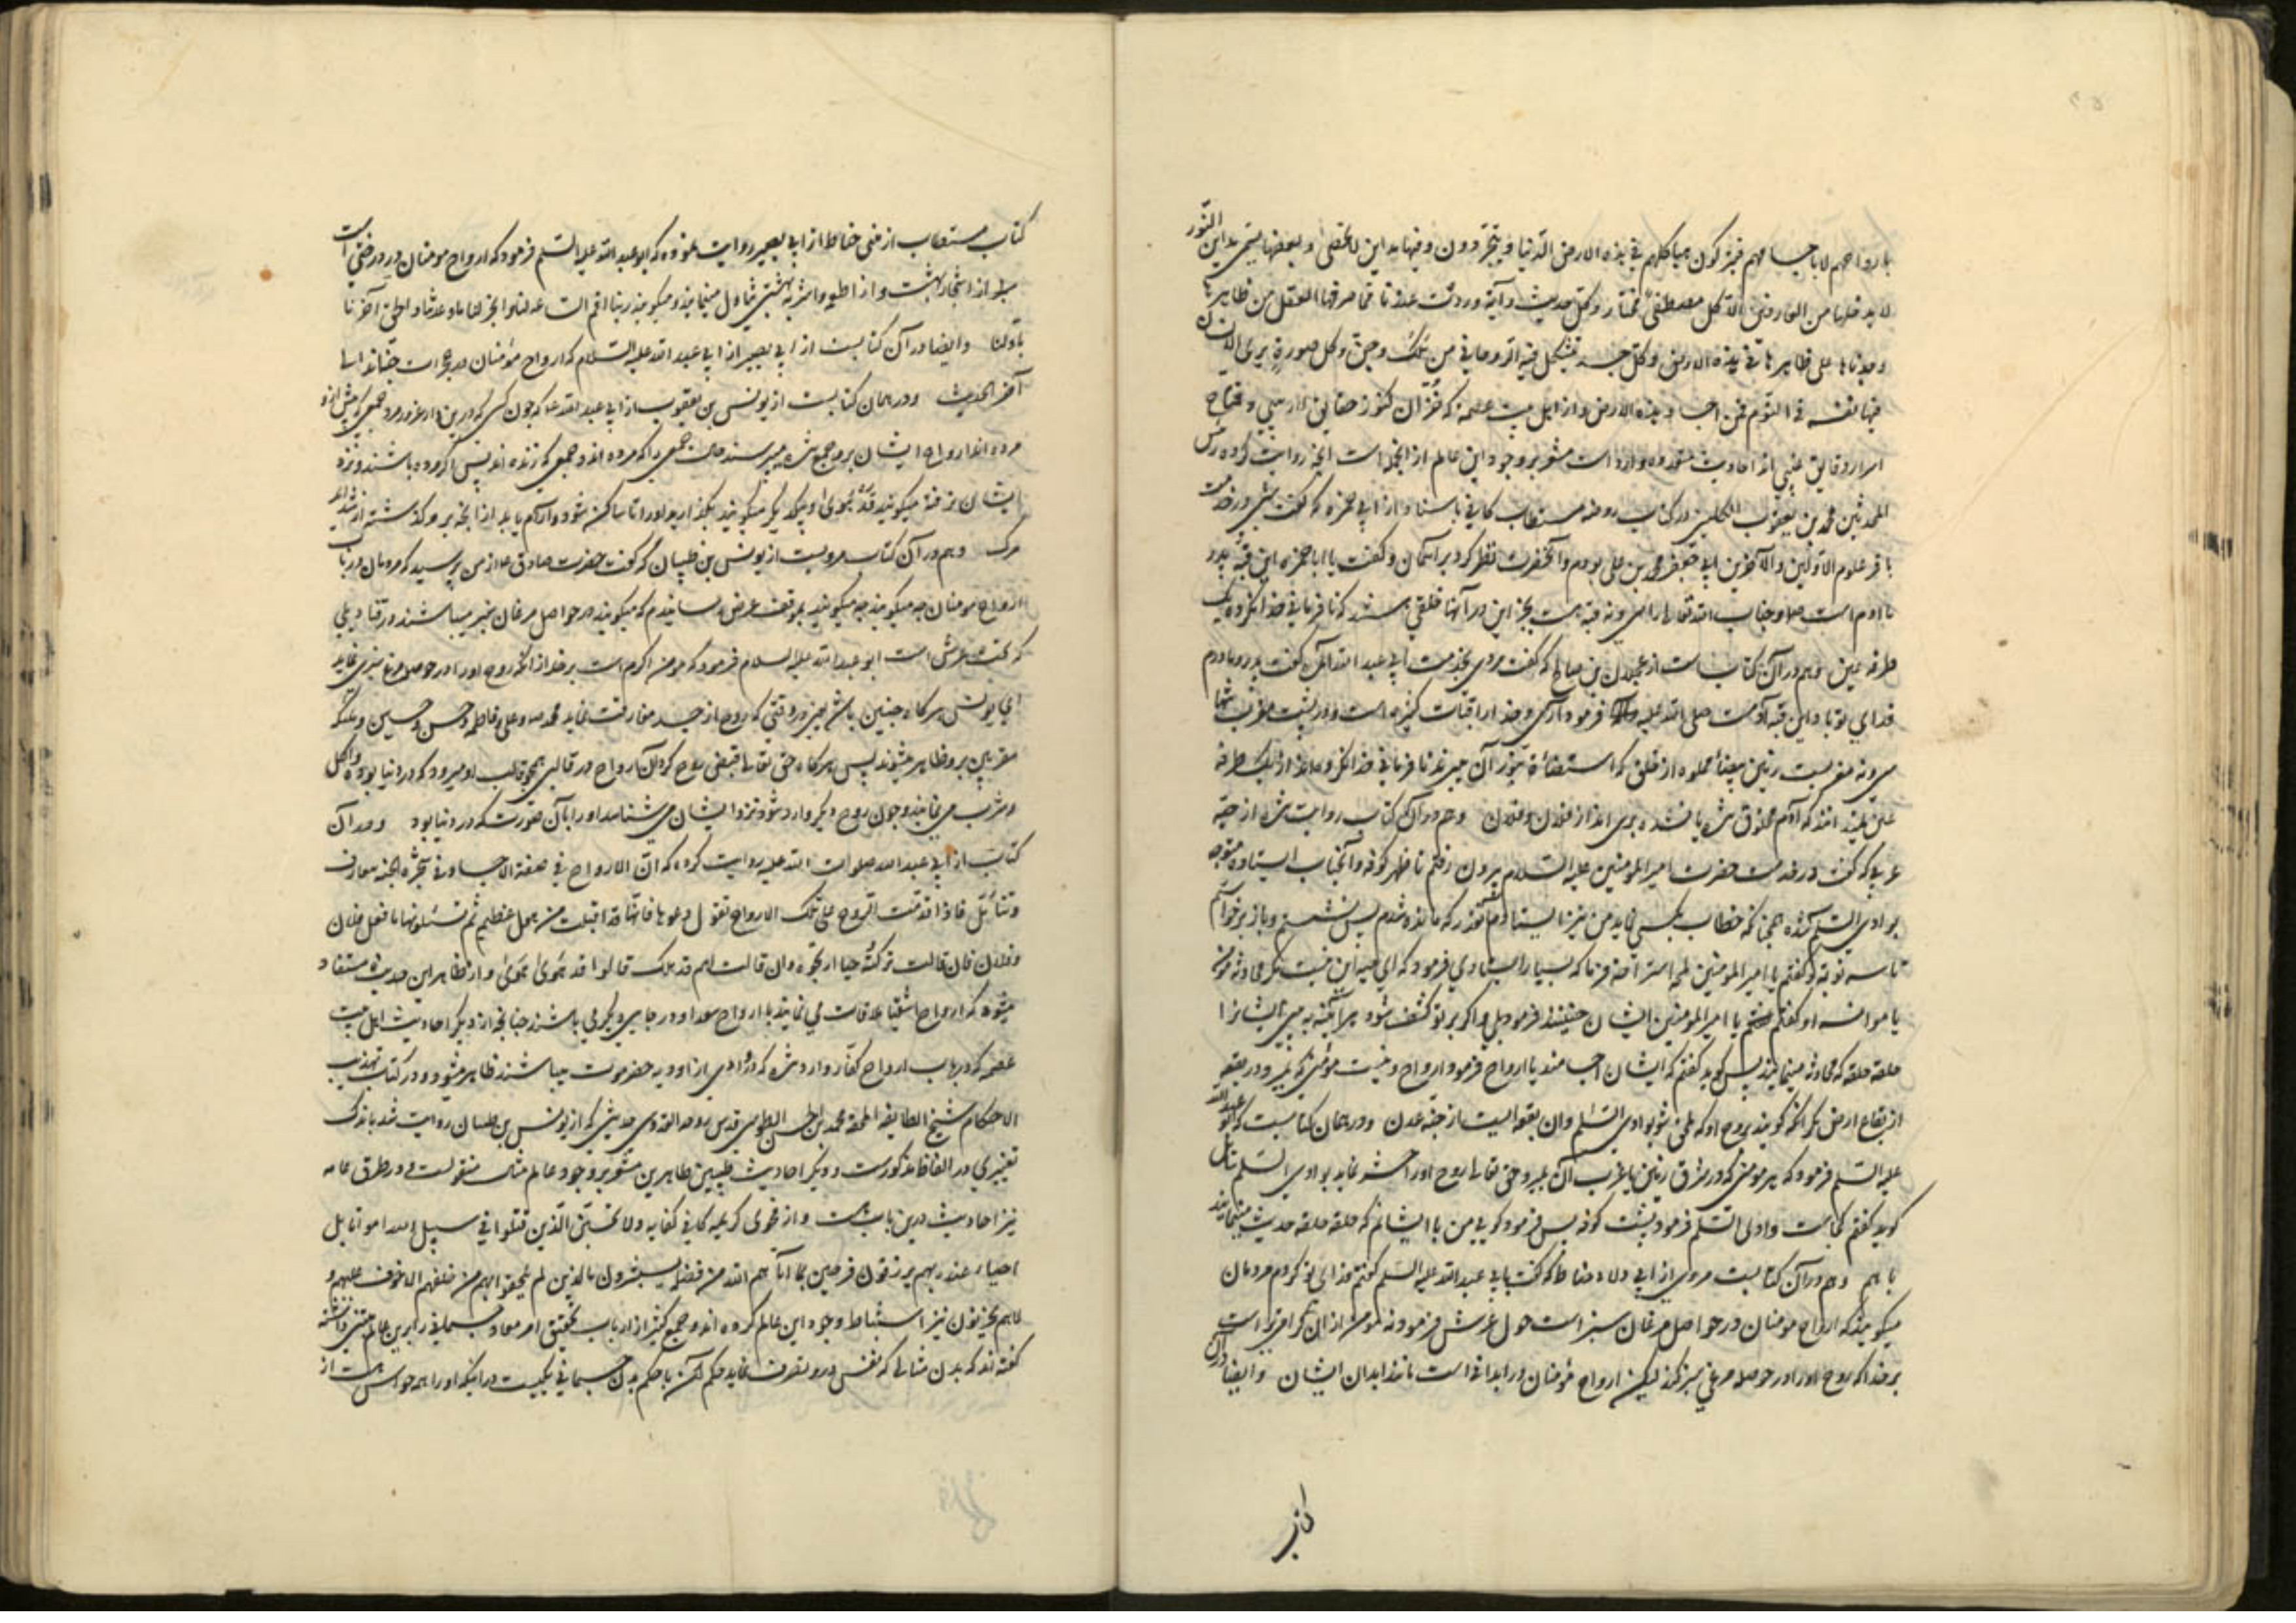 بارواحهم لا باجسامهم فيتركون هياكلهم في هذه الارض الدنيا و يتجردون وفيها مداين لا تحصى وبعضها يسمى مداين النور
لا يدخلها من العارفين الا كل مصطفى مختار وكل حديث وآية وردت عندنا مما صرفها العقل من ظاهرها
وجدناها على ظاهرها في هذه الارض وكل جسد يتشكل فيه الروحاني من ملك وجن وكل صورة يرى الانسان
فيها نفسه في النوم فمن اجساد هذه الارض و از اهل بيت عصمة كه خزان كنوز حقايق و مفتاح
اسرار دقايق غيبي اند احاديث متعدده وارد است مشعر بر وجود اين عالم از آنجمله است آنچه روايت كرده رئيس
المحدثين محمد بن يعقوب الكليني در كتاب روضه مستطاب كافي باسناد از ابي حمزه كه گفت شبي در خدمت
باقر علوم الاولين والآخرين ابي جعفر محمد بن علي بودم و آنحضرت نظر كرد بر آسمان و گفت يا ابا حمزه اين قبه پدر
ما آدم است و جناب الله تعالى را سي و نه قبه است بجز اين در آنها خلقي هستند كه نافرماني خدا نكرده يك
طرفة عين و هم در آن كتاب است از عجلان بن صالح كه گفت مردي بخدمت ابي عبد الله آمد گفت پدر و مادرم
فداي تو باد اين قبه آدم است صلى الله عليه و آله فرمود آري و خدا را قبات كثيره است و در پشت مغرب شما
سي و نه مغرب است زمين بيضاء مملوه از خلق كه استضائه بنور آن ميبرند نافرماني خدا نكرده اند از يك طرفه
عين نميدانند كه آدم مخلوق شده يا نشده بري اند از فلان و فلان و هم در آن كتاب روايت شده از حبه
عرني كه گفت در خدمت حضرت امير المؤمنين عليه السلام بيرون رفتم تا ظهر كوفه و آنجناب ايستاده متوجه
بوادي السلام شده همچنانكه خطاب بكسي نمايد من نيز ايستادم آنقدر كه مانده شدم پس نشستم و باز برخواستم
تا سه نوبت و گفتم يا امير المؤمنين لمحه استراحه فرما كه بسيار ايستادي فرمود كه اي حبه اين نيست مگر محادثه مؤمن
يا موانسه او گفتم يا امير المؤمنين ايشان چنينند فرمود بلي و اگر بر تو كشف شود هر آينه به بيني ايشانرا
حلقه حلقه كه محادثه مينمايند پس گويد گفتم كه ايشان اجسامند يا ارواح فرمود ارواح و نيست مؤمني كه بميرد در بقعه
از بقاع ارض مگر آنكه گويند بروح او كه ملحق شو بوادي السلام و آن بقعه ايست از جنه عدن و در همان كتابست كه ابو عبد الله
عليه السلام فرمود كه هر مؤمني كه در مشرق زمين يا مغرب آن بميرد حق تعالى روح او را حشر نمايد بوادي السلام ناقل
گويد گفتم كجاست وادي السلام فرمود پشت كوفه پس فرمود گويا مي بينم ايشانرا كه حلقه حلقه حديث مينمايند
با هم و هم در آن كتابست مروي از ابي ولاد حناط كه گفت بابي عبد الله عليه السلام گفتم فداي تو گردم مردمان
ميگويند كه ارواح مؤمنان در حواصل مرغان سبز است حول عرش فرمود نه مؤمن از آن گرامي تر است
بر خدا كه روح او را در حوصله مرغي سبز كند ليكن ارواح مؤمنان در ابداني است مانند ابدان ايشان و ايضا در آن
كتاب مستطاب از مثنى حناط از ابي بصير روايت نموده كه ابو عبد الله عليه السلام فرمود كه ارواح مومنان در درختي است
از اشجار بهشت و از اطعمه و اشربه بهشتي تناول مينمايند و ميگويند ربنا اقم الساعة لنا و انجز لنا ما وعدتنا و الحق آخرنا
باولنا و ايضا در آن كتابست از ابي بصير از ابي عبد الله عليه السلام كه ارواح مؤمنان در حجرات جنانند الى
آخر الحديث و در همان كتابست از يونس بن يعقوب از ابي عبد الله كه چون كسي كه درين دار غرور مرد جمعي كه پيش از او
مرده اند ارواح ايشان برو جمع شده ميپرسند حالت جمعي را كه مرده اند و جمعي كه زنده اند پس اگر مرده باشند و نزد
ايشان نرفته ميگويند قد هوى و بيكديگر ميگويند بگذاريد او را تا ساكن شود و آرام يابد از آنچه برو گذشته از شدايد
مرگ و هم در آن كتاب مرويست از يونس بن ظبيان كه گفت حضرت صادق از من پرسيد كه مردمان در باب
ارواح مومنان چه ميگويند بموقف عرض رسانيدم كه ميگويند در حواصل مرغان سبز ميباشند در قناديلي
كه تحت عرش است ابو عبد الله عليه السلام فرمود كه مومن اكرم است بر خدا از آنكه روح او را در حوصله مرغ سبزي نمايد
اي يونس هر گاه چنين باشد يعني در وقتي كه روح از جسد مفارقت نمايد محمد و علي و فاطمه و حسن و حسين و ملئكه
مقربين برو ظاهر ميشوند پس هر گاه حق تعالى قبض روح كرد آن ارواح در قالبي همچو قالب او ميرود كه در دنيا بوده و اكل
و شرب مي نمايند و چون روح ديگر وارد شود نزد ايشان مي شناسد او را بآن صورت كه در دنيا بود و در آن
كتاب از ابي عبد الله صلوات الله عليه روايت كرده كه ان الارواح في صفة الاجساد في شجرة الجنة تعارف
و تتسائل فاذا قدمت الروح على تلك الارواح تقول دعوها فانها قد اقبلت من هول عظيم ثم تسئلونها ما فعل فلان
و فلان فان قالت تركته حيا ارتجوه و ان قالت لهم قد هلك قالوا قد هوى هوى و از ظاهر اين حديث مستفاد
ميشود كه ارواح اشقيا ملاقات نمي نمايند با ارواح سعدا و در جاي ديگر مي باشند چنانچه از ديگر احاديث اهل بيت
عصمه كه در باب ارواح كفار وارد شده كه در وادي از اوديه حضرموت ميباشند ظاهر ميشود و در كتاب تهذيب
الاحكام شيخ الطايفه المحقه محمد بن الحسن الطوسي قدس روحه القدوسي حديثي كه از يونس بن ظبيان روايت شد باندك
تغييري در الفاظ مذكورست و ديگر احاديث طيبين طاهرين مشعر بر وجود عالم مثال منقولست و در طرق عامه
نيز احاديث درين باب هست و از فحوى كريمه كافي كفايه ولا تحسبن الذين قتلوا في سبيل الله امواتا بل
احياء عند ربهم يرزقون فرحين بما آتاهم الله من فضله يستبشرون بالذين لم يلحقوا بهم من خلفهم الا خوف عليهم و
لا هم يحزنون نيز استنباط وجود اين عالم كرده اند و جمع كثير از ارباب تحقيق امر معاد جسماني را برين عالم مبتني داشته
گفته اند كه بدن مثالي كه نفس درو تصرف نمايد حكم آن با حكم بدن جسماني يكيست در آنكه او را همه حواس هست از